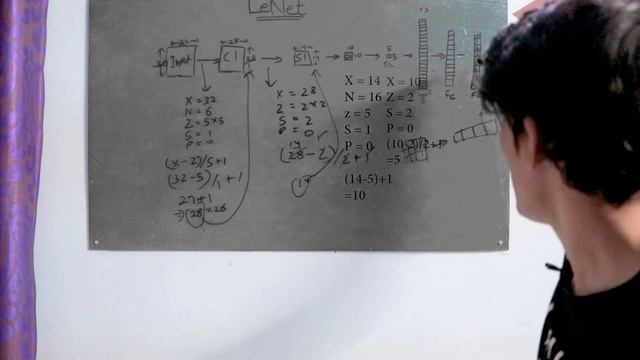 LeNet
Input
C1
S1
X = 32
N = 6
Z = 5x5
S = 1
P = 0
(x-2)/S+1
(32-5)/1+1
27+1
=> 28 x 28
X = 28
Z = 2x2
S = 2
P = 0
(28-2)/2+1
14
X = 14
N = 16
z = 5
S = 1
P = 0
(14-5)+1
=10
X = 10
Z = 2
S = 2
P = 0
(10-2)/2+1
=5